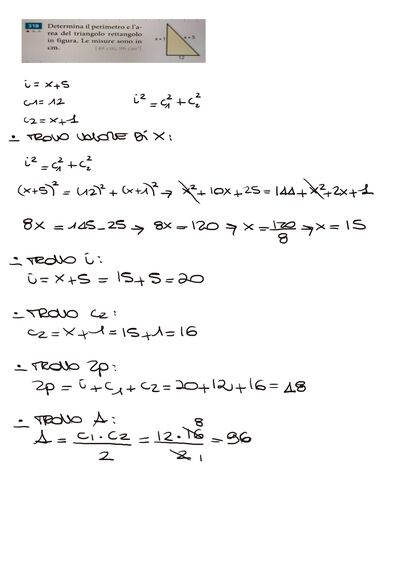 318 Determina il perimetro e l'a-
rea del triangolo rettangolo
in figura. Le misure sono in
cm. [48 cm; 96 cm²]
x + 1
x + 5
12
i = x+5
c1 = 12
i² = c₁² + c₂²
c2 = x+1
- TROVO VALORE DI X:
i² = c₁² + c₂²
(x+5)² = (12)² + (x+1)² → x² + 10x + 25 = 144 + x² + 2x + 1
8x = 145 - 25 → 8x = 120 → x = 120/8 → x = 15
- TROVO i:
i = x+5 = 15+5 = 20
- TROVO c2:
c2 = x+1 = 15+1 = 16
- TROVO 2p:
2p = i + c1 + c2 = 20+12+16 = 48
- TROVO A:
A = c1 · c2 / 2 = 12 · 16 8 / 2 1 = 96